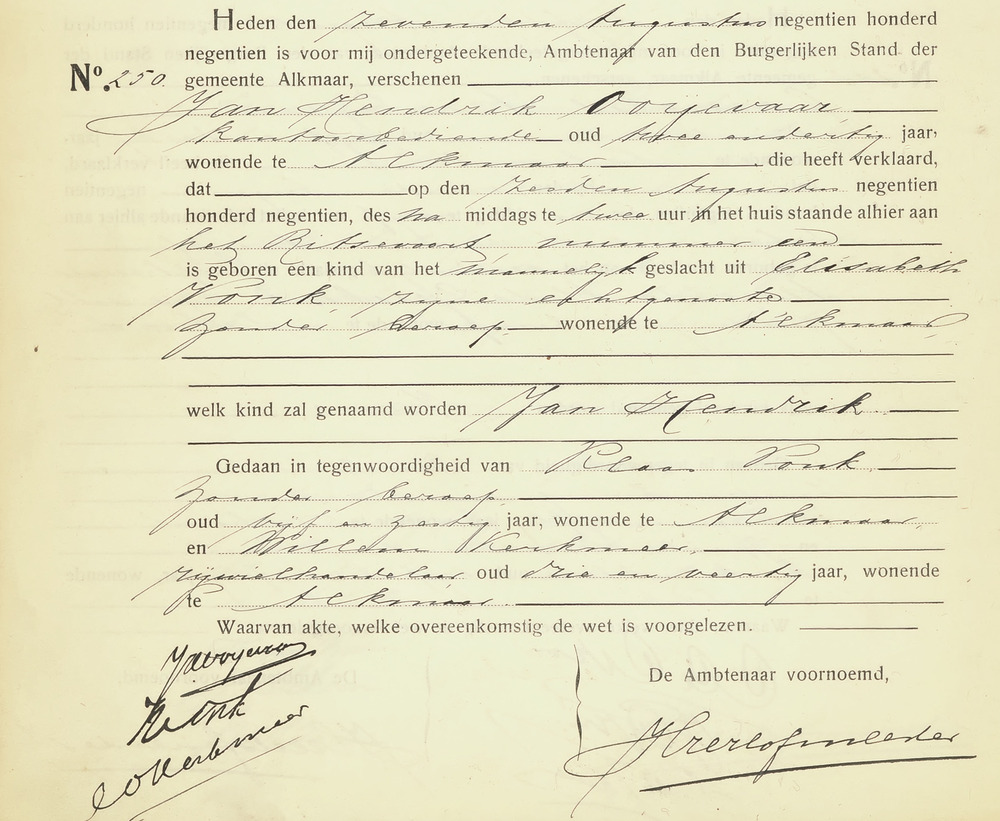 Heden den zevenden Augustus negentien honderd
negentien is voor mij ondergeteekende, Ambtenaar van den Burgerlijken Stand der
No. 250. gemeente Alkmaar, verschenen
Jan Hendrik Ooijevaar
kantoorbediende oud twee en dertig jaar,
wonende te Alkmaar die heeft verklaard,
dat op den zesden Augustus negentien
honderd negentien, des na middags te twee uur in het huis staande alhier aan
het Ritsevoort nummer een
is geboren een kind van het mannelijk geslacht uit Elisabeth
Vonk zijne echtgenoote
zonder beroep wonende te Alkmaar
welk kind zal genaamd worden Jan Hendrik
Gedaan in tegenwoordigheid van Klaas Vonk
zonder beroep
oud vijf en zestig jaar, wonende te Alkmaar,
en Willem Kerkmeer,
rijwielhandelaar oud drie en veertig jaar, wonende
te Alkmaar
Waarvan akte, welke overeenkomstig de wet is voorgelezen.
De Ambtenaar voornoemd,
K Vonk